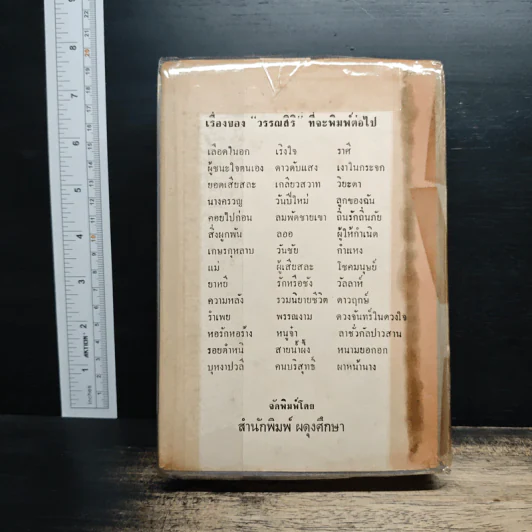 เรื่องของ "วรรณสิริ" ที่จะพิมพ์ต่อไป
เลือดในอก เริงใจ ราศี
ผู้ชนะใจตนเอง ดาวดับแสง เงาในกระจก
ยอดเสียสละ เกลียวสวาท วิยะดา
นางครวญ วันปีใหม่ ลูกของฉัน
คอยไปก่อน ลมพัดชายเขา ถิ่นรักถิ่นภัย
สิ่งผูกพัน ลออ ผู้ให้กำเนิด
เกษรกุหลาบ วันชัย กำแหง
แม่ ผู้เสียสละ โชคมนุษย์
ยาหยี รักหรือชัง วัลลาห์
ความหลัง รวมนิยายชีวิต ดาวฤกษ์
รำเพย พรรณงาม ดวงจันทร์ในดวงใจ
หอรักหอร้าง หนูจ๋า ลาชั่วกัลปาวสาน
รอยตำหนิ สายน้ำผึ้ง หนามยอกอก
บุหงาปวลี คนบริสุทธิ์ ผาหน้านาง
จัดพิมพ์โดย
สำนักพิมพ์ ผดุงศึกษา